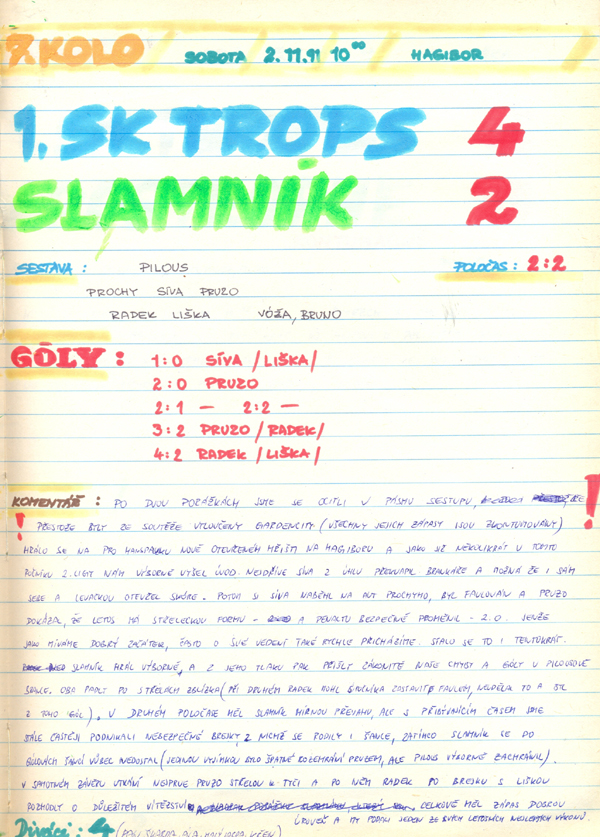 9. KOLO SOBOTA 2.11.91 10⁰⁰ HAGIBOR
1. SK TROPS 4
SLAMNÍK 2
SESTAVA : PILOUS POLOČAS : 2:2
PROCHY SÍVA PRUZO
RADEK LIŠKA VÓŽA, BRUNO
GÓLY : 1:0 SÍVA /LIŠKA/
2:0 PRUZO
2:1 — 2:2 —
3:2 PRUZO /RADEK/
4:2 RADEK /LIŠKA/
KOMENTÁŘ : PO DVOU PORÁŽKÁCH JSME SE OCITLI V PÁSMU SESTUPU,
! PŘESTOŽE BYLY ZE SOUTĚŽE VYLOUČENY GARDENCITY (VŠECHNY JEJICH ZÁPASY JSOU ZKONTUMOVÁNY) !
HRÁLO SE NA PRO NOVĚ OTEVŘENÉM HŘIŠTI NA HAGIBORU A JAKO UŽ NĚKOLIKRÁT V TOMTO
ROČNÍKU 2. LIGY NÁM VÝBORNĚ VYŠEL ÚVOD. NEJDŘÍVE SÍVA Z ÚHLU PŘEKVAPIL BRANKÁŘE A MOŽNÁ ŽE I SÁM
SEBE A LEVAČKOU OTEVŘEL SKÓRE. POTOM SI SÍVA NABĚHL NA AUT PROCHYMO, BYL FAULOVÁN A PRUZO
DOKÁZAL, ŽE LETOS MÁ STŘELECKOU FORMU - A PENALTU BEZPEČNĚ PROMĚNIL - 2:0. JENŽE
JAKO MÍVÁME DOBRÝ ZAČÁTEK, ČASTO O SVÉ VEDENÍ TAKÉ RYCHLE PŘICHÁZÍME. STALO SE TO I TENTOKRÁT.
SLAMNÍK HRÁL VÝBORNĚ, A Z JEHO TLAKU PAK PŘIŠLY ZÁKONITĚ NAŠE CHYBY A GÓLY V PILOUSOVĚ
BRANCE. OBA PADLY PO STŘELÁCH ZBLÍZKA (PŘI DRUHÉM RADEK MOHL ÚTOČNÍKA ZASTAVIT FAULEM, NEUDĚLAL TO A BYL
Z TOHO GÓL). V DRUHÉM POLOČASE MĚL SLAMNÍK MÍRNOU PŘEVAHU, ALE S PŘIBÝVAJÍCÍM ČASEM JSME
STÁLE ČASTĚJI PODNIKALI NEBEZPEČNÉ BREJKY, Z NICHŽ SE RODILY I ŠANCE, ZATÍMCO SLAMNÍK SE DO
GÓLOVÝCH ŠANCÍ VŮBEC NEDOSTAL (JEDINOU VÝJIMKOU BYLO ŠPATNÉ ROZEHRÁNÍ PRUZEM, ALE PILOUS VÝBORNĚ ZACHRÁNIL).
V SAMOTNÉM ZÁVĚRU UTKÁNÍ NEJPRVE PRUZO STŘELOU K TYČI A PO NĚM RADEK PO BREJKU S LIŠKOU
ROZHODLY O DŮLEŽITÉM VÍTĚZSTVÍ. CELKOVĚ MĚL ZÁPAS DOBROU
ÚROVEŇ A MY PODALI JEDEN ZE SVÝCH LETOŠNÍCH NEJLEPŠÍCH VÝKONŮ.
Diváci : 4